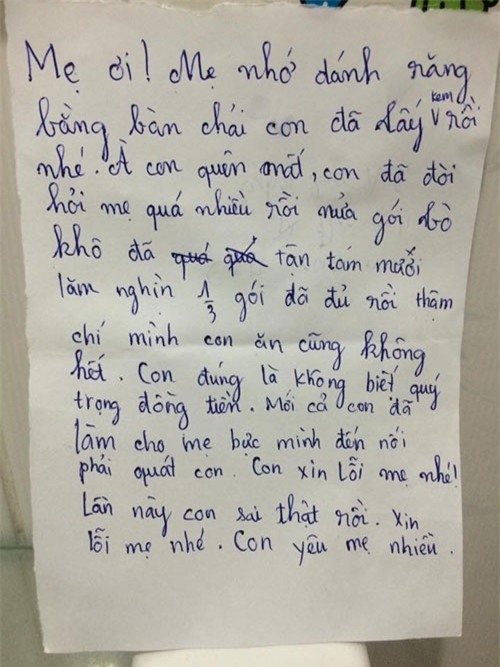 Mẹ ơi! Mẹ nhớ dánh răng
bằng bàn chải con đã lấy kem rồi
nhé. À con quên mất, con đã đời
hỏi mẹ quá nhiều rồi nửa gói bò
khô đã quá quá tận tám mưỡi
lăm nghìn 1/3 gói đã đủ rồi thậm
chí mình con ăn cũng không
hết. Con đúng là không biết quý
trọng đồng tiền. Mới cả con đã
làm cho mẹ bực mình đến nối
phải quát con. Con xin lỗi mẹ nhé!
Lần này con sai thật rồi. Xin
lỗi mẹ nhé. Con yêu mẹ nhiều.